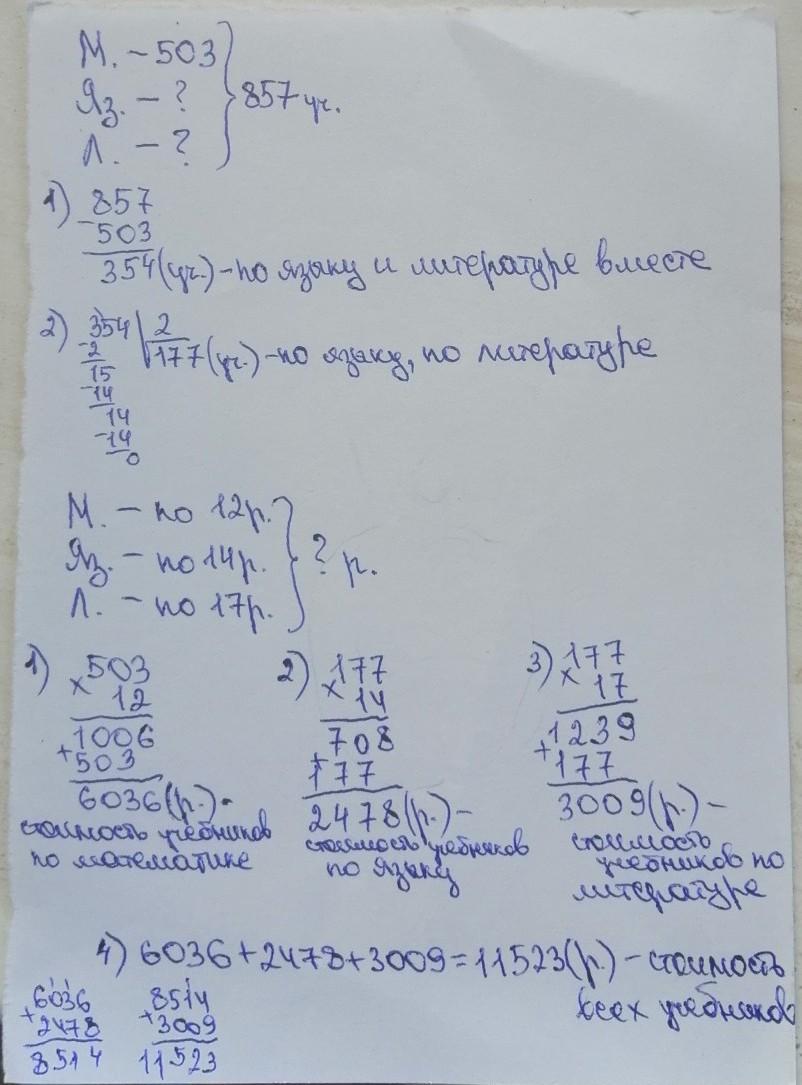 М. - 503
Яз. - ?
Л. - ?
} 857 уч.
1) 857
- 503
354 (уч.) - по языку и литературе вместе
2) 354 | 2
- 2 177 (уч.) - по языку, по литературе
15
- 14
14
- 14
0
М. - по 12 р.
Яз. - по 14 р.
Л. - по 17 р.
} ? р.
1) 503
× 12
1006
+ 503
6036 (р.) -
стоимость учебников
по математике
2) 177
× 14
708
+ 177
2478 (р.) -
стоимость учебников
по языку
3) 177
× 17
1239
+ 177
3009 (р.) -
стоимость
учебников по
литературе
4) 6036 + 2478 + 3009 = 11523 (р.) - стоимость
всех учебников
6036
+ 2478
8514
8514
+ 3009
11523